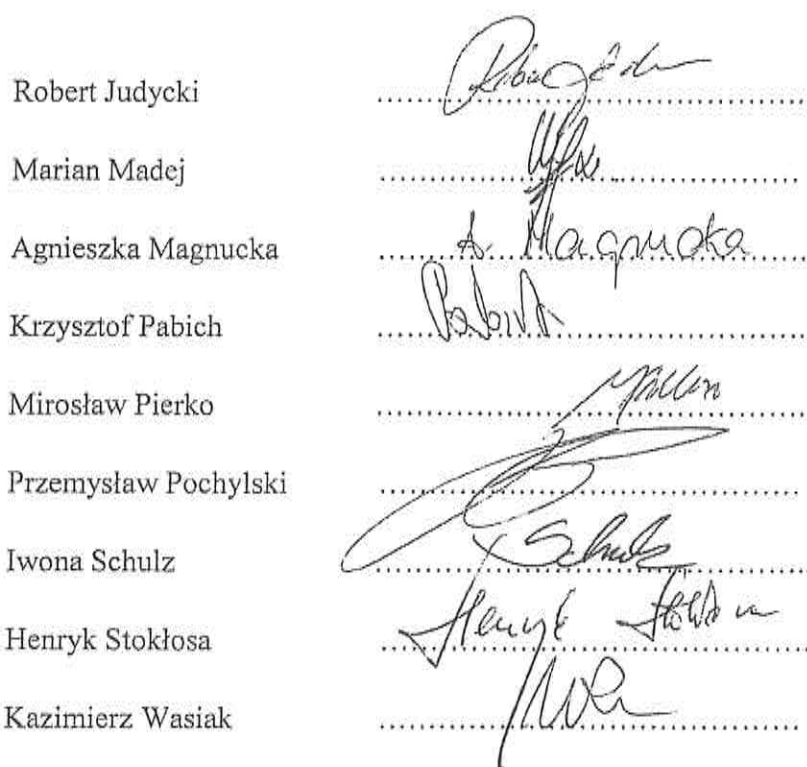 Robert Judycki
Marian Madej
Agnieszka Magnucka A. Magnucka
Krzysztof Pabich Pabich
Mirosław Pierko
Przemysław Pochylski
Iwona Schulz Schulz
Henryk Stokłosa Henryk Stokłosa
Kazimierz Wasiak